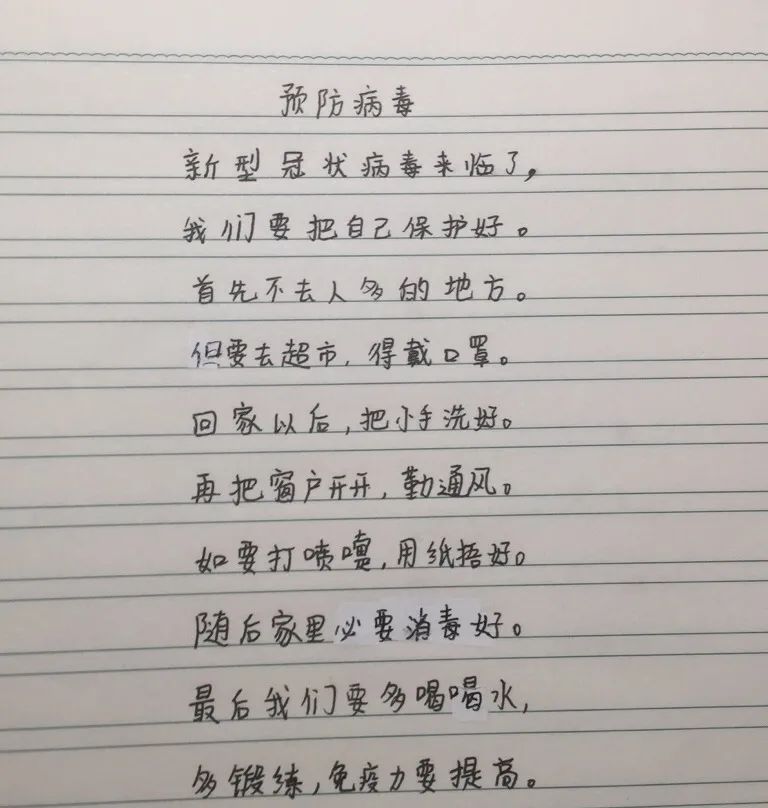 预防病毒
新型冠状病毒来临了，
我们要把自己保护好。
首先不去人多的地方。
但要去超市，得戴口罩。
回家以后，把小手洗好。
再把窗户开开，勤通风。
如要打喷嚏，用纸捂好。
随后家里必要消毒好。
最后我们要多喝喝水，
多锻练，免疫力要提高。